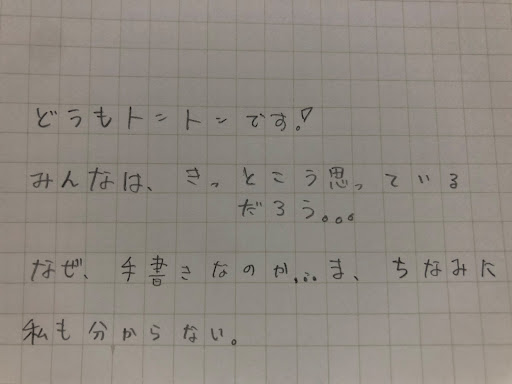 どうもトントンです!
みんなは、きっとこう思っている
だろう。。。
なぜ、手書きなのか...ま、ちなみに
私も分からない。